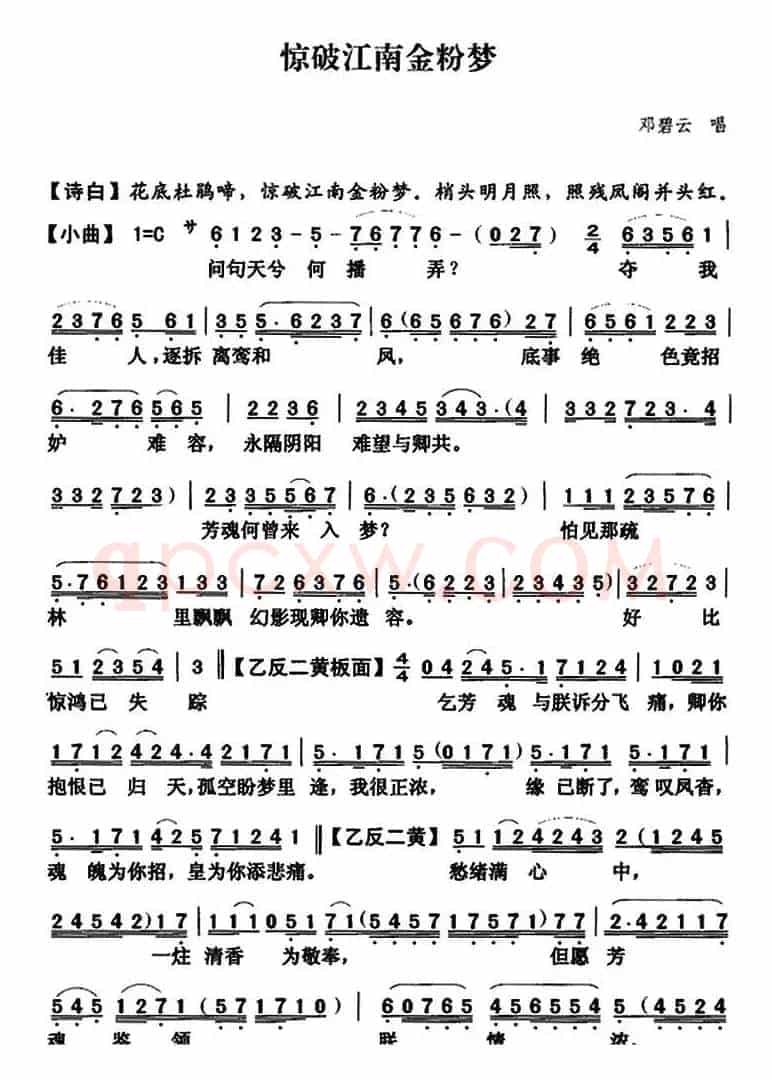 惊破江南金粉梦
邓碧云 唱
【诗白】花底杜鹃啼，惊破江南金粉梦．梢头明月照，照残凤阁并头红．
【小曲】 1=C サ 6 1 2 3 - 5 - 7 6 7 7 6 - ( 0 2 7 ) 2/4 6 3 5 6 1 |
问句天兮 何 播 弄？ 夺 我
2 3 7 6 5 6 1 | 3 5 5 . 6 2 3 7 | 6 ( 6 5 6 7 6 ) 2 7 | 6 5 6 1 2 2 3 |
佳 人，逐拆 离鸾和 风， 底事 绝 色竟招
6 . 2 7 6 5 6 5 | 2 2 3 6 | 2 3 4 5 3 4 3 . ( 4 | 3 3 2 7 2 3 . 4 |
妒 难 容， 永隔阴阳 难望与卿共。
3 3 2 7 2 3 ) | 2 3 3 5 5 6 7 | 6 . ( 2 3 5 6 3 2 ) | 1 1 1 2 3 5 7 6 |
芳魂何曾来 入 梦？ 怕见那疏
qpcxw.com
5 . 7 6 1 2 3 1 3 3 | 7 2 6 3 7 6 | 5 . ( 6 1 2 3 | 2 3 4 3 5 ) | 3 2 7 2 3 |
林 里飘飘 幻影现卿你遗 容。 好 比
5 1 2 3 5 4 | 3 ‖ 【乙反二黄板面】 4/4 0 4 2 4 5 . 1 7 1 2 4 | 1 0 2 1 |
惊鸿已 失 踪 乞芳 魂 与朕诉分飞 痛，卿你
1 7 1 2 4 2 4 . 2 1 7 1 | 5 . 1 7 1 5 ( 0 1 7 1 ) | 5 . 1 7 1 5 . 1 7 1 |
抱恨已 归 天，孤空盼梦里 逢，我很正浓， 缘 已断了，鸾 叹风杳，
5 . 1 7 1 4 2 5 7 1 2 4 1 ‖ 【乙反二黄】 5 1 1 2 4 4 2 4 3 2 ( 1 2 4 5 |
魂 魄为你招，皇为你添悲痛。 愁绪满 心 中，
2 4 5 4 2 ) 1 7 | 1 1 1 0 5 1 7 1 ( 5 4 5 7 1 7 5 7 1 ) 7 7 | 2 . 4 2 1 1 7 |
一炷 清香 为敬奉， 但愿 芳
5 4 5 1 2 7 1 ( 5 7 1 7 1 0 ) | 6 0 7 6 5 4 5 6 5 5 4 5 . ( 4 5 2 4 |
魂 鉴 领 朕 情 浓。